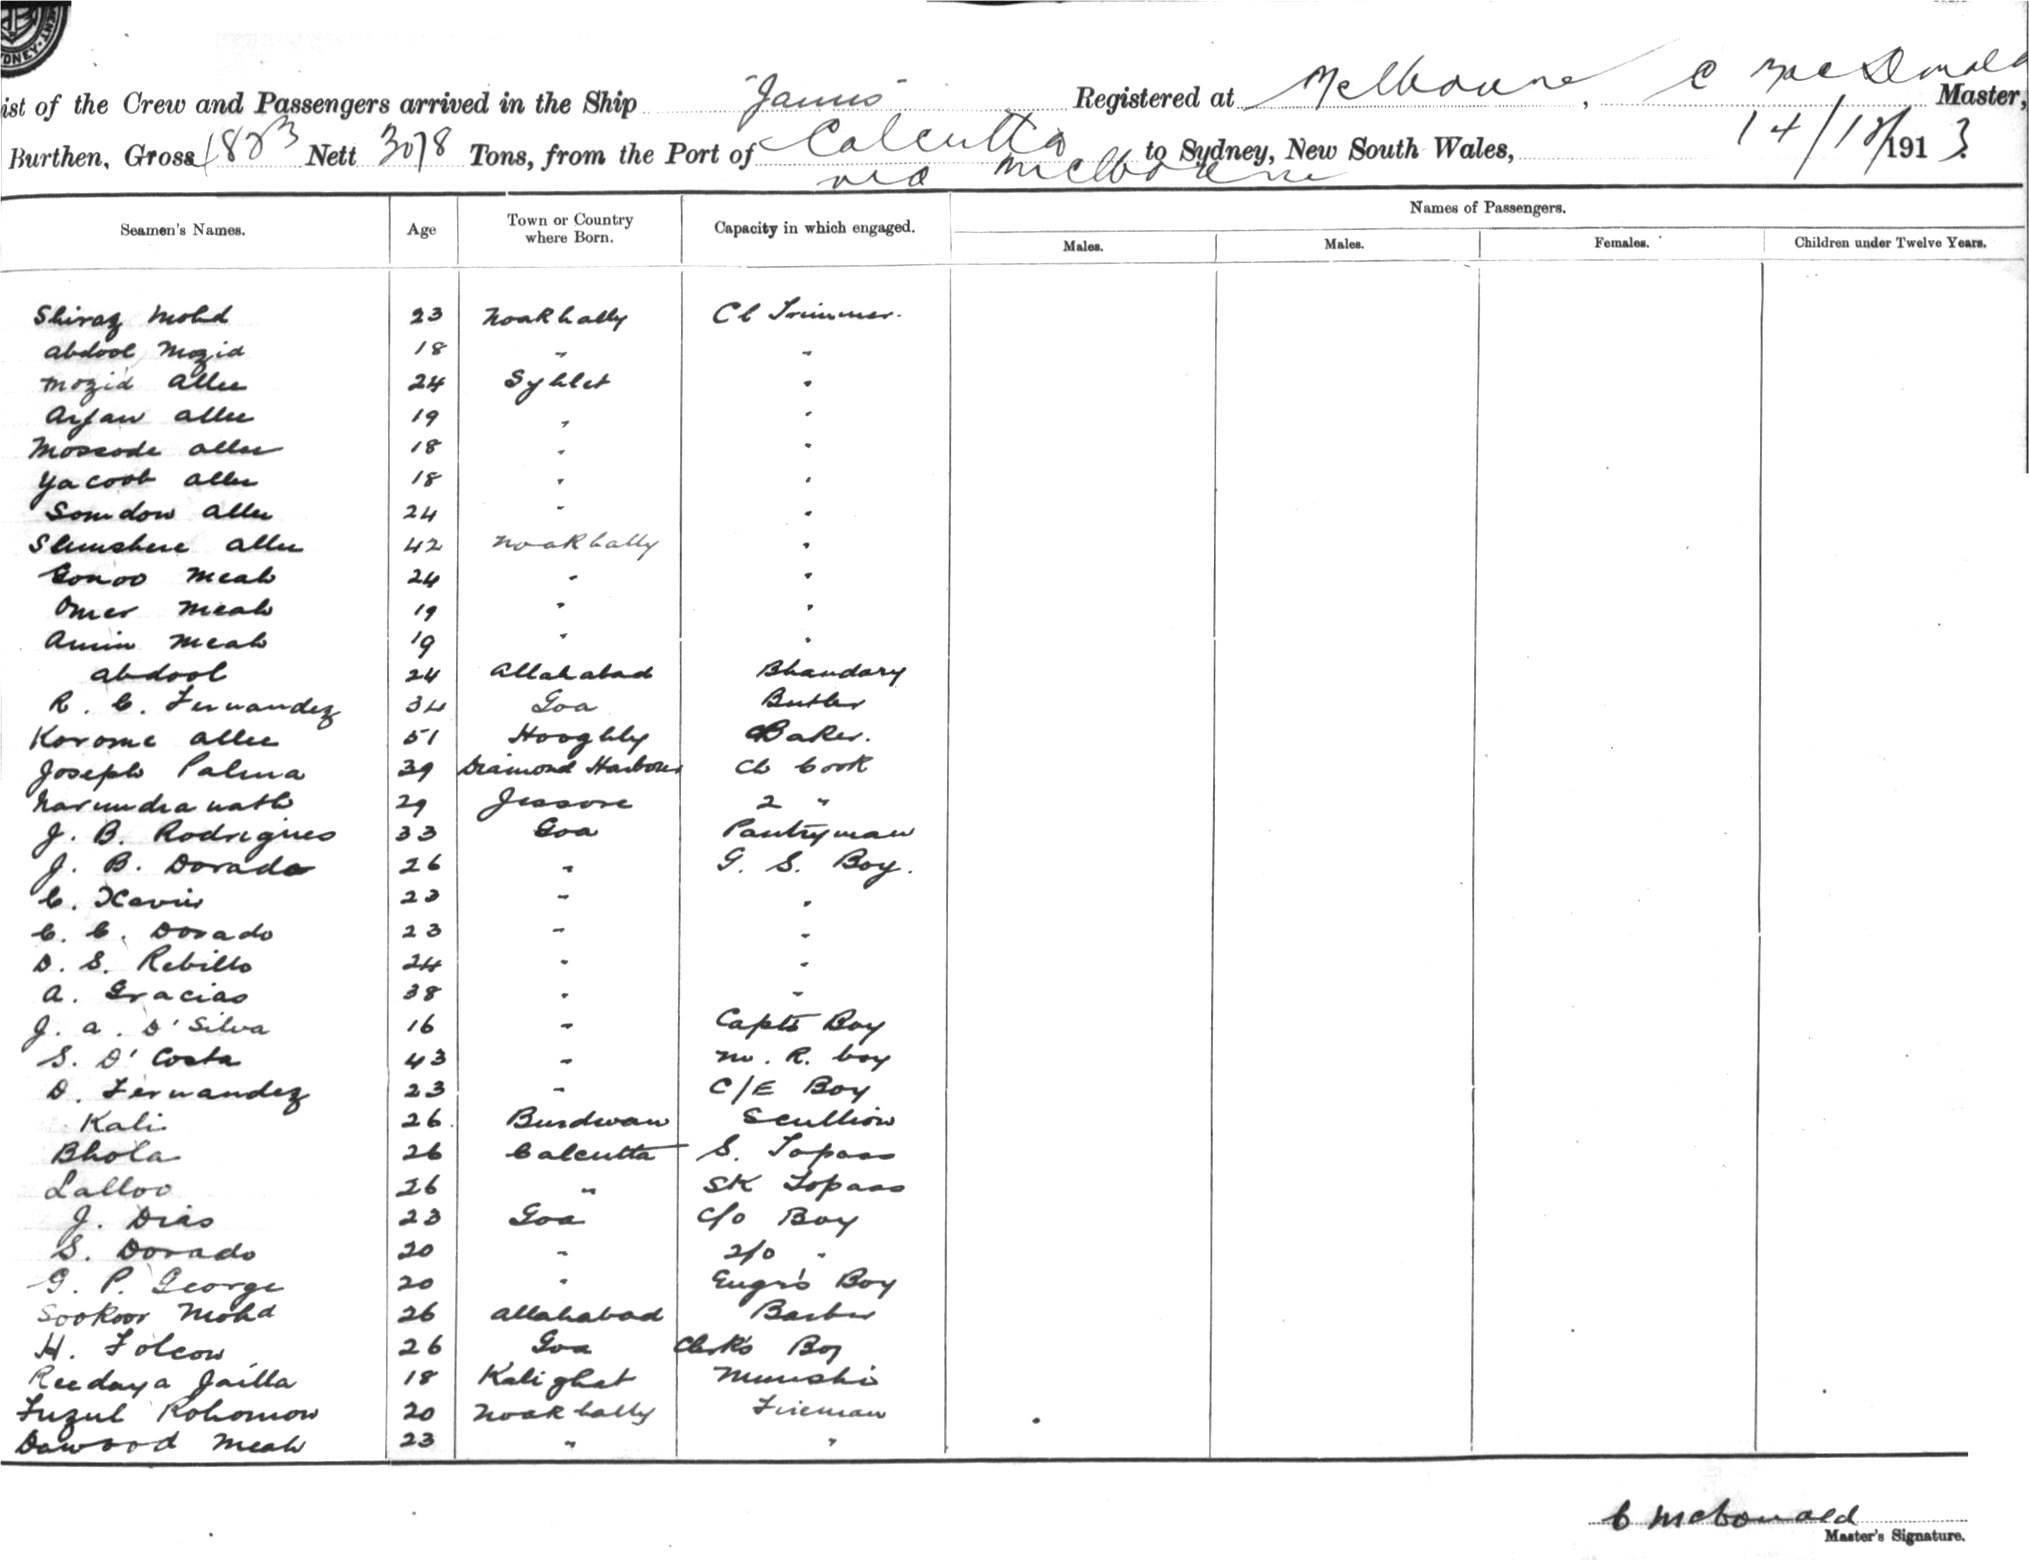 ist of the Crew and Passengers arrived in the Ship "Janus" Registered at Melbourne, C MacDonald Master,
Burthen, Gross Nett 3078 Tons, from the Port of Calcutta to Sydney, New South Wales, 14/12/1913.
via Melbourne
Seamen's Names. Age Town or Country where Born. Capacity in which engaged. Names of Passengers.
Males. Males. Females. Children under Twelve Years.
Shiraz Mohd 23 Noakhally Cl Trimmer.
Abdool Mozid 18 " "
Mozid Allee 24 Syhlet "
Arfan Allee 19 " "
Allee 18 " "
Yacoob Allee 18 " "
Somdow Allee 24 " "
Allee 42 Noakhally "
Gonoo Meah 24 " "
Omer Meah 19 " "
Amin Meah 19 " "
Abdool 24 Allahabad Bhandary
R. C. Fernandez 34 Goa Butler
Korome Allee 51 Hooghly Baker.
Joseph Palma 39 Diamond Harbour Ch Cook
Narundranath 29 Jessore 2 "
J. B. Rodrigues 33 Goa Pantryman
J. B. Dorado 26 " G. S. Boy.
C. Xavier 23 " "
C. C. Dorado 23 " "
D. S. Rebillo 24 " "
A. Gracias 38 " "
J. A. D'Silva 16 " Capts Boy
S. D'Costa 43 " M. R. boy
D. Fernandez 23 " C/E Boy
Kali 26 Burdwan Scullion
Bhola 26 Calcutta S. Topass
Lalloo 26 " SK Topass
J. Dias 23 Goa C/o Boy
S. Dorado 20 " 2/o "
G. P. George 20 " Engr's Boy
Sookoor Mohd 26 Allahabad Barber
H. Folcow 26 Goa Clerk's Boy
Reedaya Jailla 18 Kalighat Munshi
Fuzul Rohomow 20 Noakhally Fireman
Dawood Meah 23 " "
C McDonald
Master's Signature.